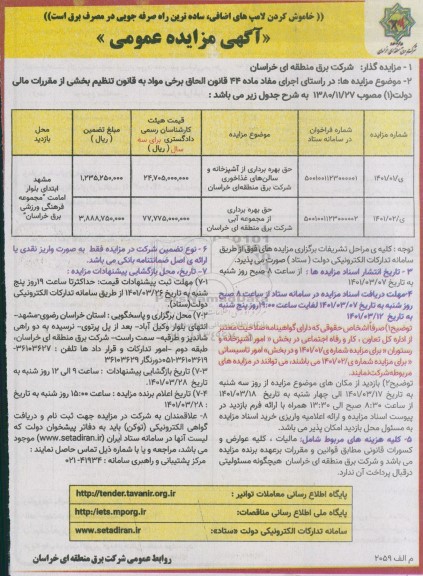 (( خاموش کردن لامپ های اضافی، ساده ترین راه صرفه جویی در مصرف برق است))
«آگهی مزایده عمومی »
۱ - مزایده گذار: شرکت برق منطقه ای خراسان
۲- موضوع مزایده ها: در راستای اجرای مفاد ماده ۴۴ قانون الحاق برخی مواد به قانون تنظیم بخشی از مقررات مالی
دولت(۱) مصوب ۱۳۸۰/۱۱/۲۷ به شرح جدول زیر می باشد :
شماره مزایده
شماره فراخوان در سامانه ستاد
موضوع مزایده
قیمت هیئت کارشناسان رسمی دادگستری برای سه سال ( ریال )
مبلغ تضمین ( ریال )
محل بازدید
ی/۱۴۰۱/۰۱
۵۰۰۱۰۰۱۱۲۳۰۰۰۰۰۱
حق بهره برداری از آشپزخانه و سالن‌های غذاخوری شرکت برق منطقه‌ای خراسان
۲۴,۷۰۵,۰۰۰,۰۰۰
۱,۲۳۵,۲۵۰,۰۰۰
ی/۱۴۰۱/۰۲
۵۰۰۱۰۰۱۱۲۳۰۰۰۰۰۲
حق بهره برداری از مجموعه آبی شرکت برق منطقه ای خراسان
۷۷,۷۷۵,۰۰۰,۰۰۰
۳,۸۸۸,۷۵۰,۰۰۰
مشهد ابتدای بلوار امامت "مجموعه فرهنگی ورزشی برق خراسان"
توجه : کلیه ی مراحل تشریفات برگزاری مزایده های فوق از طریق
سامانه تدارکات الکترونیکی دولت ( ستاد ) صورت می پذیرد.
۳ - تاریخ انتشار اسناد مزایده ها : از ساعت ۸ صبح روز شنبه
به تاریخ ۱۴۰۱/۰۳/۰۷
۴-مهلت دریافت اسناد مزایده در سامانه ستاد از ساعت ۸ صبح
روز شنبه به تاریخ ۱۴۰۱/۰۳/۰۷ لغایت ساعت ۱۹:۰۰ روز پنج شنبه
به تاریخ ۱۴۰۱/۰۳/۱۲
توضیح۱) صرفاً اشخاص حقوقی که دارای گواهینامه صلاحیت معتبر
از اداره کل تعاون ، کار و رفاه اجتماعی در بخش « امور آشپزخانه و
رستوران » برای مزایده شماره ی/۱۴۰۱/۰۱ و در بخش « امور تاسیساتی
» برای مزایده شماره ی/۱۴۰۱/۰۲ می باشند، می توانند در مزایده های
مربوطه شرکت نمایند.
توضیح۲) بازدید از مکان های موضوع مزایده از روز سه شنبه
به تاریخ ۱۴۰۱/۰۳/۱۷ الی چهار شنبه به تاریخ ۱۴۰۱/۰۳/۱۸
از ساعت ۸:۳۰ صبح الی ۱۳:۳۰ همراه با ارائه فرم بازدید در
پیوست اسناد مزایده و ارائه اعلامیه واریزی خرید اسناد مزایده
به مسئول محل بازدید امکان پذیر می باشد.
۵- کلیه هزینه های مربوط شامل: مالیات ، کلیه عوارض و
کسورات قانونی مطابق قوانین و مقررات برعهده برنده مزایده
می باشد و شرکت برق منطقه ای خراسان هیچگونه مسئولیتی
درقبال پرداخت آن ندارد.
۶ - نوع تضمین شرکت در مزایده فقط به صورت واریز نقدی یا
ارائه ی اصل ضمانتنامه بانکی می باشد.
۷- تاریخ، محل بازگشایی پیشنهادات مزایده :
۷-۱) مهلت ثبت پیشنهادات قیمت: حداکثرتا ساعت ۱۹روز پنج
شنبه به تاریخ ۱۴۰۱/۰۳/۲۶ از طریق سامانه تدارکات الکترونیکی
دولت(ستاد).
۷-۲) محل برگزاری و پاسخگویی : استان خراسان رضوی-مشهد-
انتهای بلوار وکیل آباد- بعد از پل پرتوی- نرسیده به دو راهی
شاندیز و طرقبه- سمت راست- شرکت برق منطقه ای خراسان،
طبقه دوم -امور تدارکات و قرار داد ها تلفن : ۳۶۱۰۳۶۲۷-
۳۶۱۰۳۶۱۹-۰۵۱ دورنگار ۳۶۱۰۳۶۲۹
۷-۳) تاریخ بازگشایی پیشنهادات : ساعت ۹ الی ۱۲ روز شنبه به
تاریخ ۱۴۰۱/۰۳/۲۸.
۷-۴) تاریخ اعلام برنده مزایده : ساعت ۱۵:۰۰ روز شنبه به تاریخ
۱۴۰۱/۰۳/۲۸
۸- علاقمندان به شرکت در مزایده جهت ثبت نام و دریافت
گواهی الکترونیکی (توکن) باید به دفاتر پیشخوان دولت که
لیست آنها در سامانه ستاد ایران (www.setadiran.ir) موجود
می باشد، مراجعه و یا با شماره ذیل تماس حاصل نمایند :
مرکز پشتیبانی و راهبری سامانه : ۴۱۹۳۴-۰۲۱
پایگاه اطلاع رسانی معاملات توانیر :
http://tender.tavanir.org.ir
پایگاه ملی اطلاع رسانی مناقصات:
http:/iets.mporg.ir
سامانه تدارکات الکترونیکی دولت «ستاد»:
www.setadiran.ir
روابط عمومی شرکت برق منطقه ای خراسان
م الف ۲۰۵۹